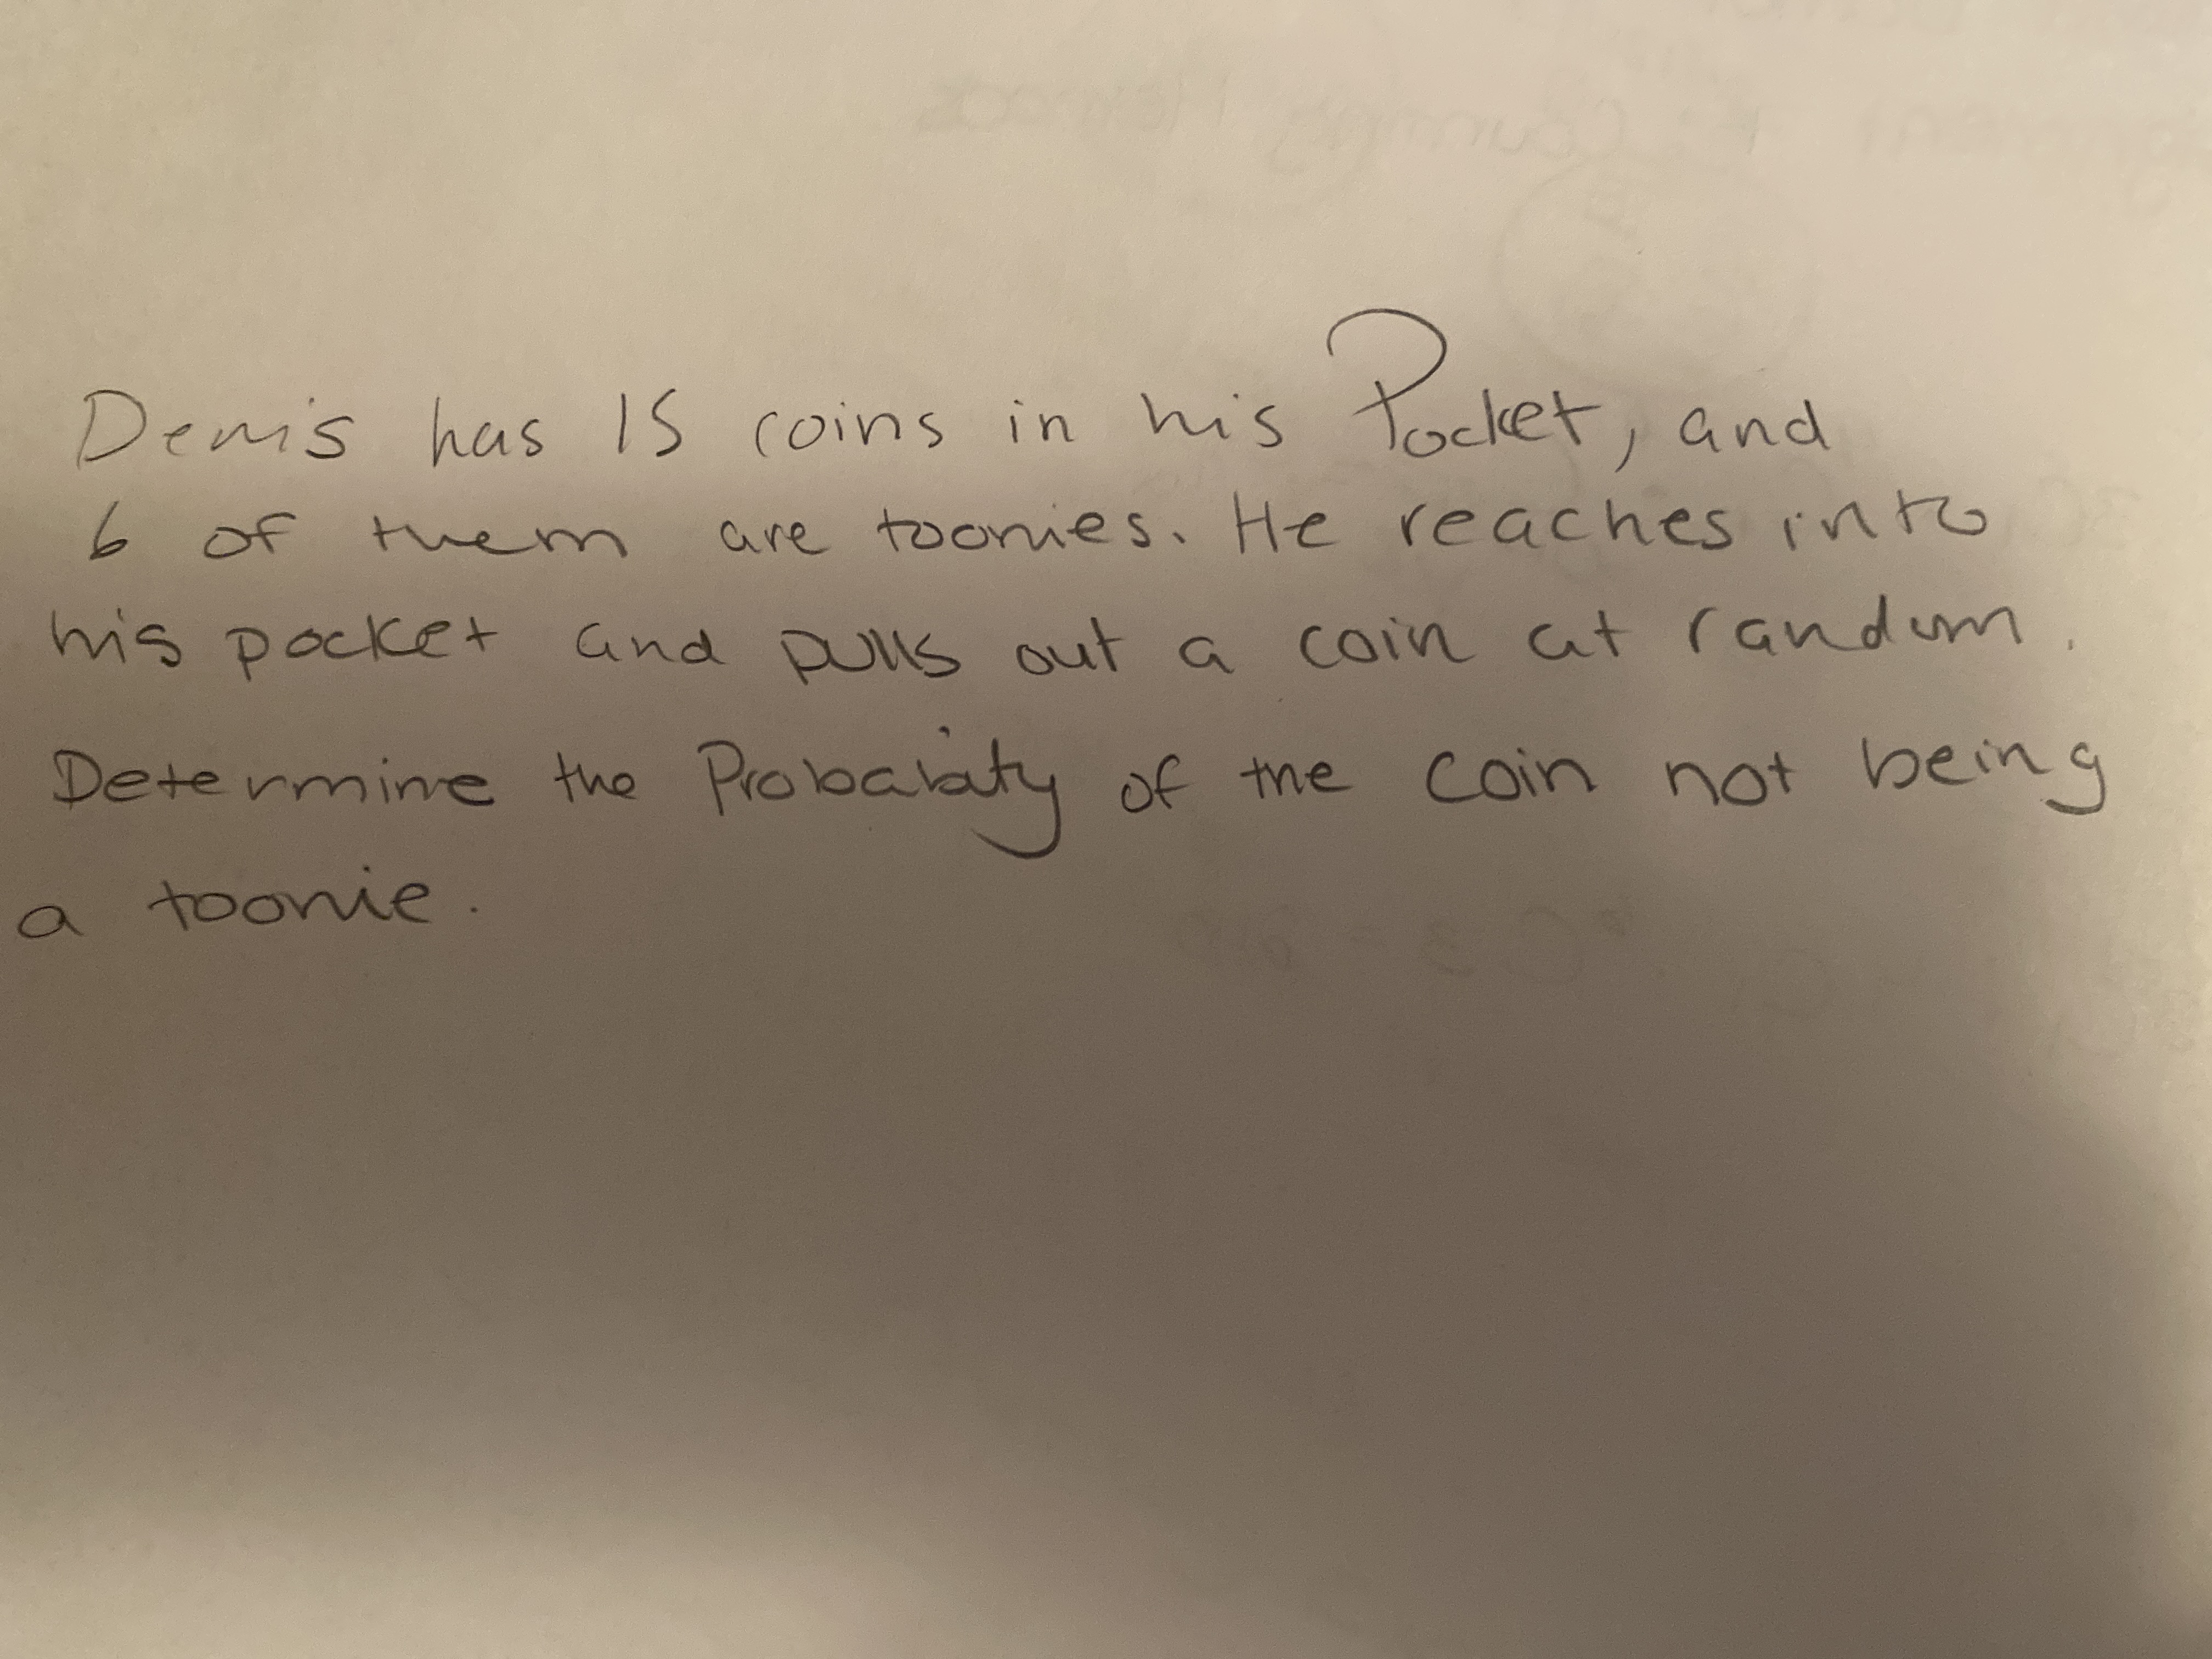 Denis has 15 coins in his Pocket, and
6 of them are toonies. He reaches into
his pocket and pulls out a coin at random.
Determine the Probability of the Coin not being
a toonie.